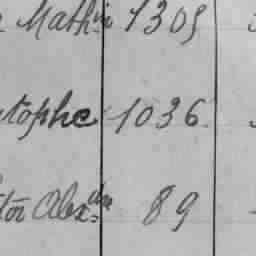 Mathin 1309
stophe 1036
tor Alexdre 89